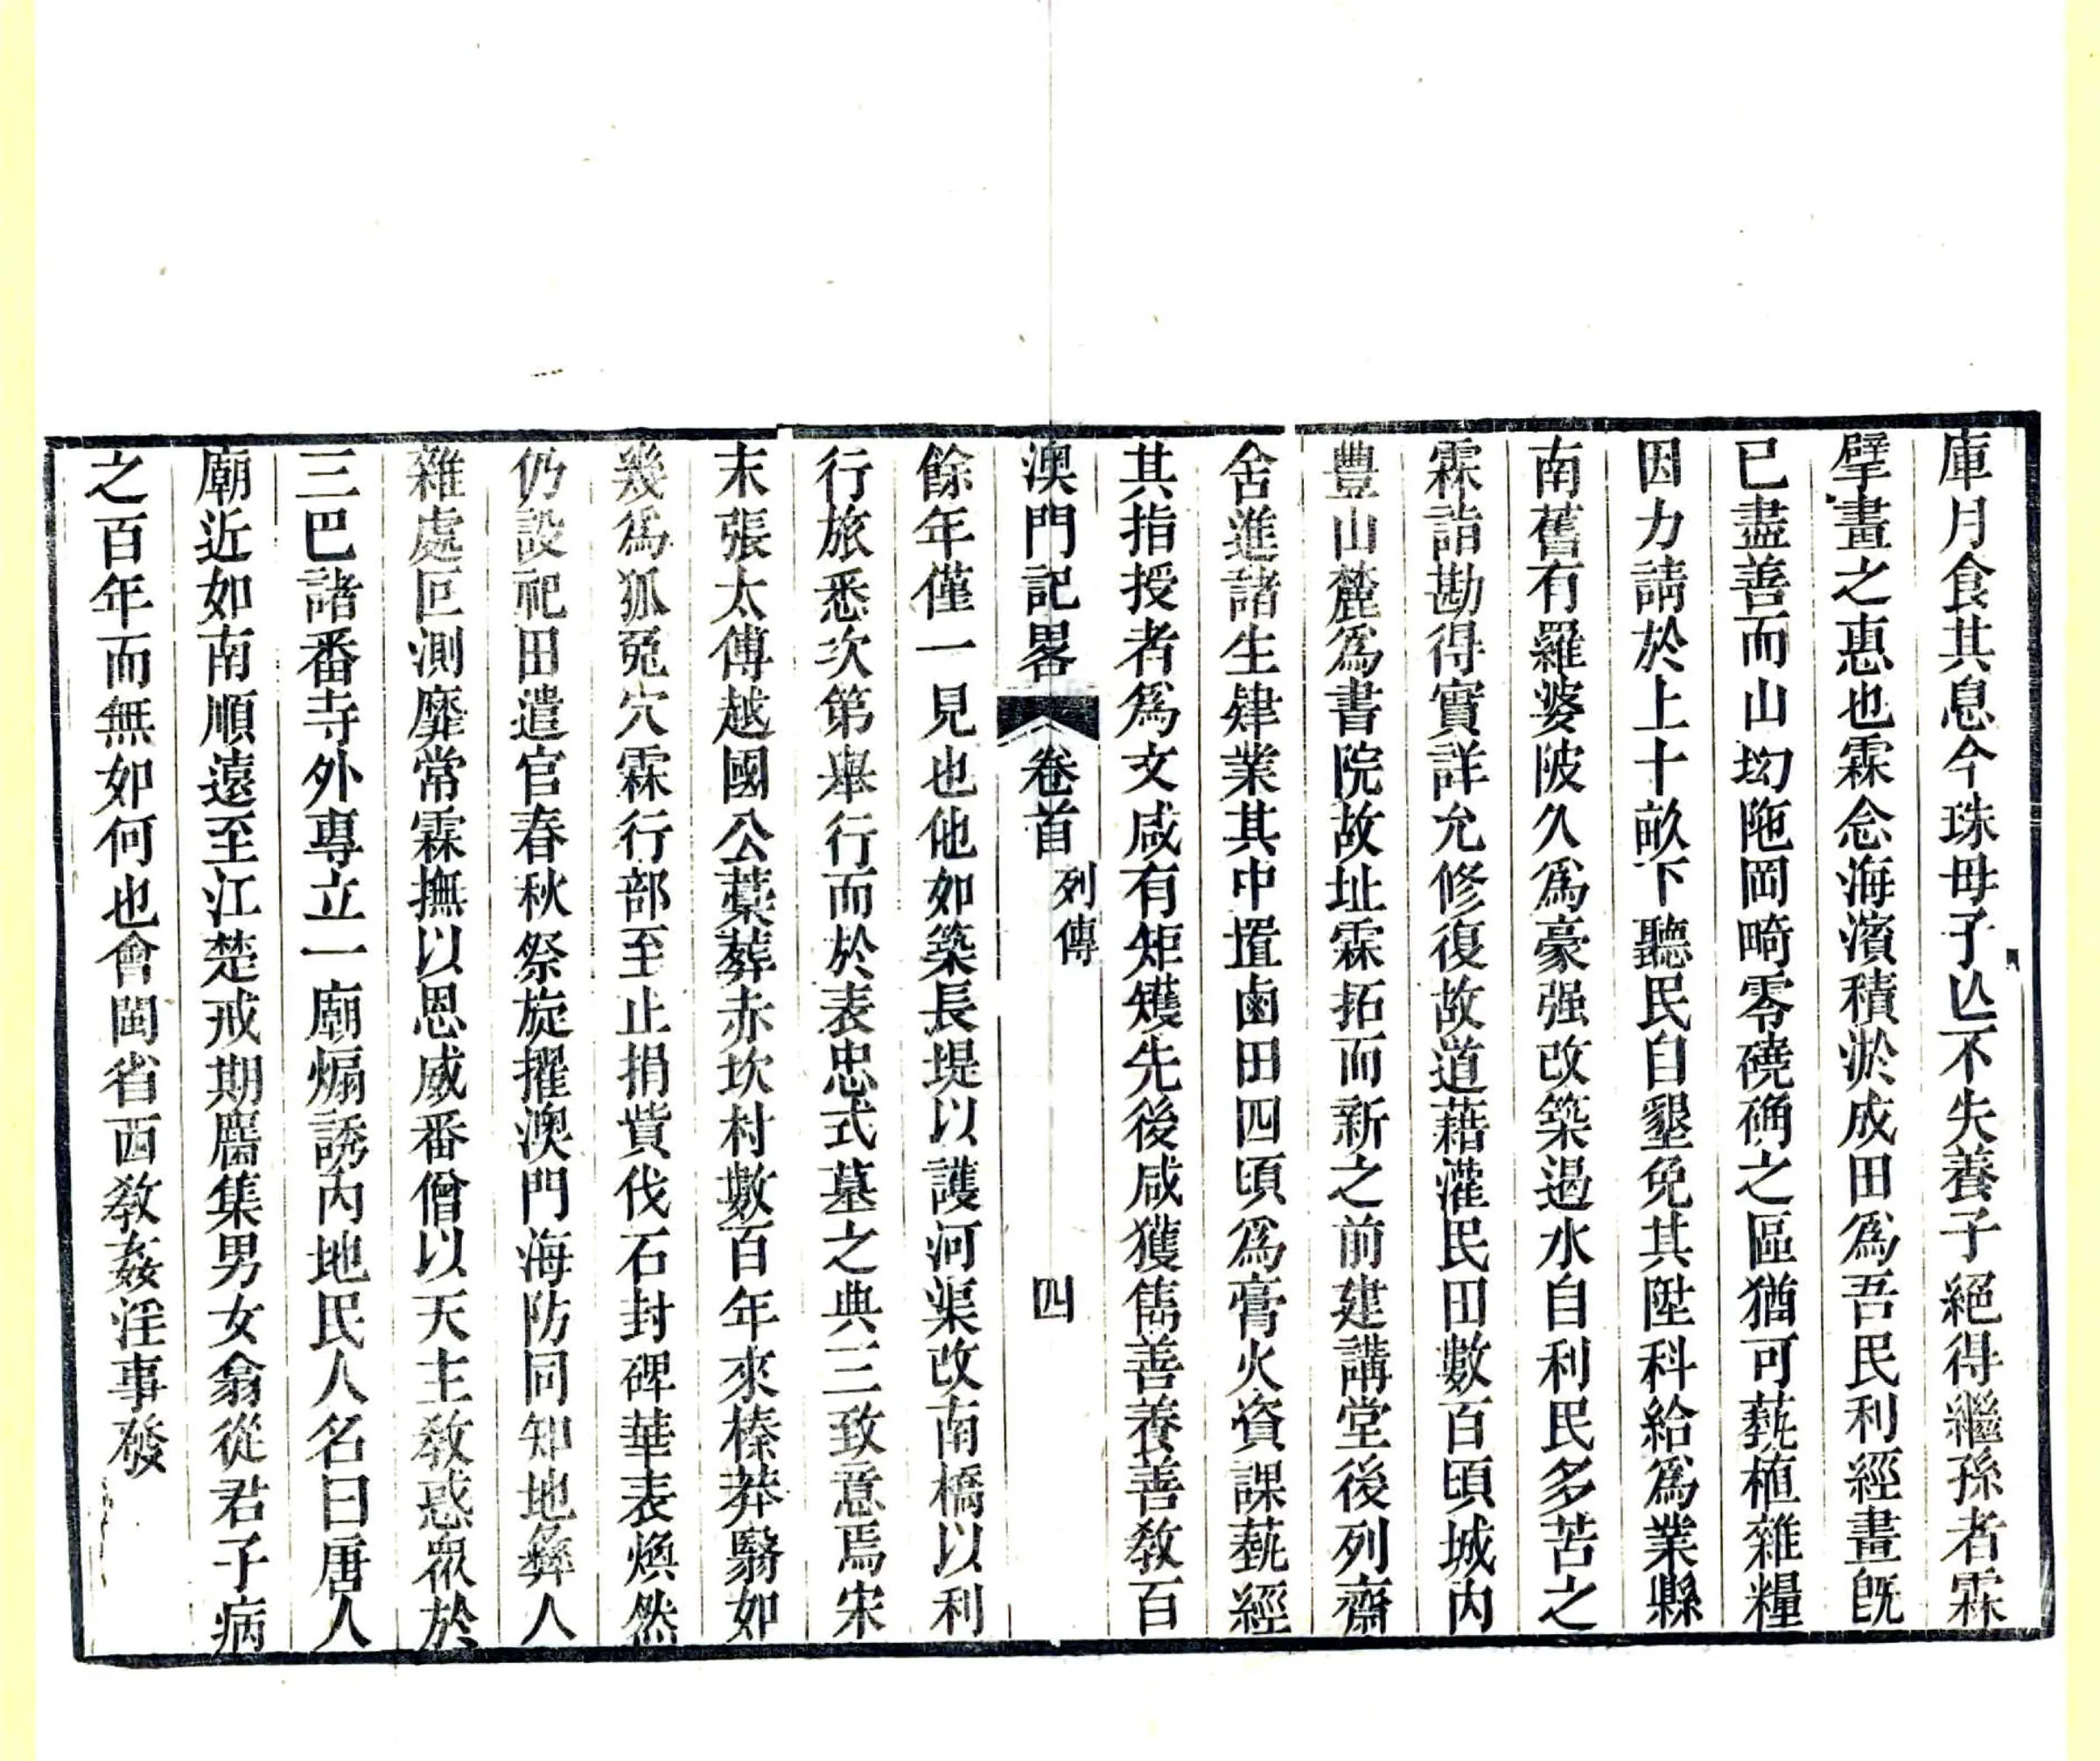 庫月食其息今珠母子亾不失養子絕得繼孫者霖
擘畫之惠也霖念海濱積淤成田爲吾民利經畫旣
已盡善而山㘭陁岡畸零磽确之區猶可蓺植雜糧
因力請於上十畝下聽民自墾免其陞科給爲業縣
南舊有羅婆陂久爲豪强改築遏水自利民多苦之
霖詣勘得實詳允修復故道藉灌民田數百頃城內
豐山麓爲書院故址霖拓而新之前建講堂後列齋
舍進諸生肄業其中置鹵田四頃爲膏火資課蓺經
其指授者爲文咸有矩矱先後咸獲雋善養善敎百
澳門記畧 卷首 列傳 四
餘年僅一見也他如築長堤以護河渠改南橋以利
行旅悉次第舉行而於表忠式墓之典三致意焉宋
末張太傅越國公藁葬赤坎村數百年來榛莽翳如
幾爲狐兎穴霖行部至止捐貲伐石封碑華表煥然
仍設祀田遣官春秋祭旋擢澳門海防同知地彝人
雜處叵測靡常霖撫以恩威番僧以天主敎惑眾於
三巴諸番寺外專立一廟煽誘內地民人名曰唐人
廟近如南順遠至江楚戒期麕集男女翕從君子病
之百年而無如何也會閩省西敎姦淫事發